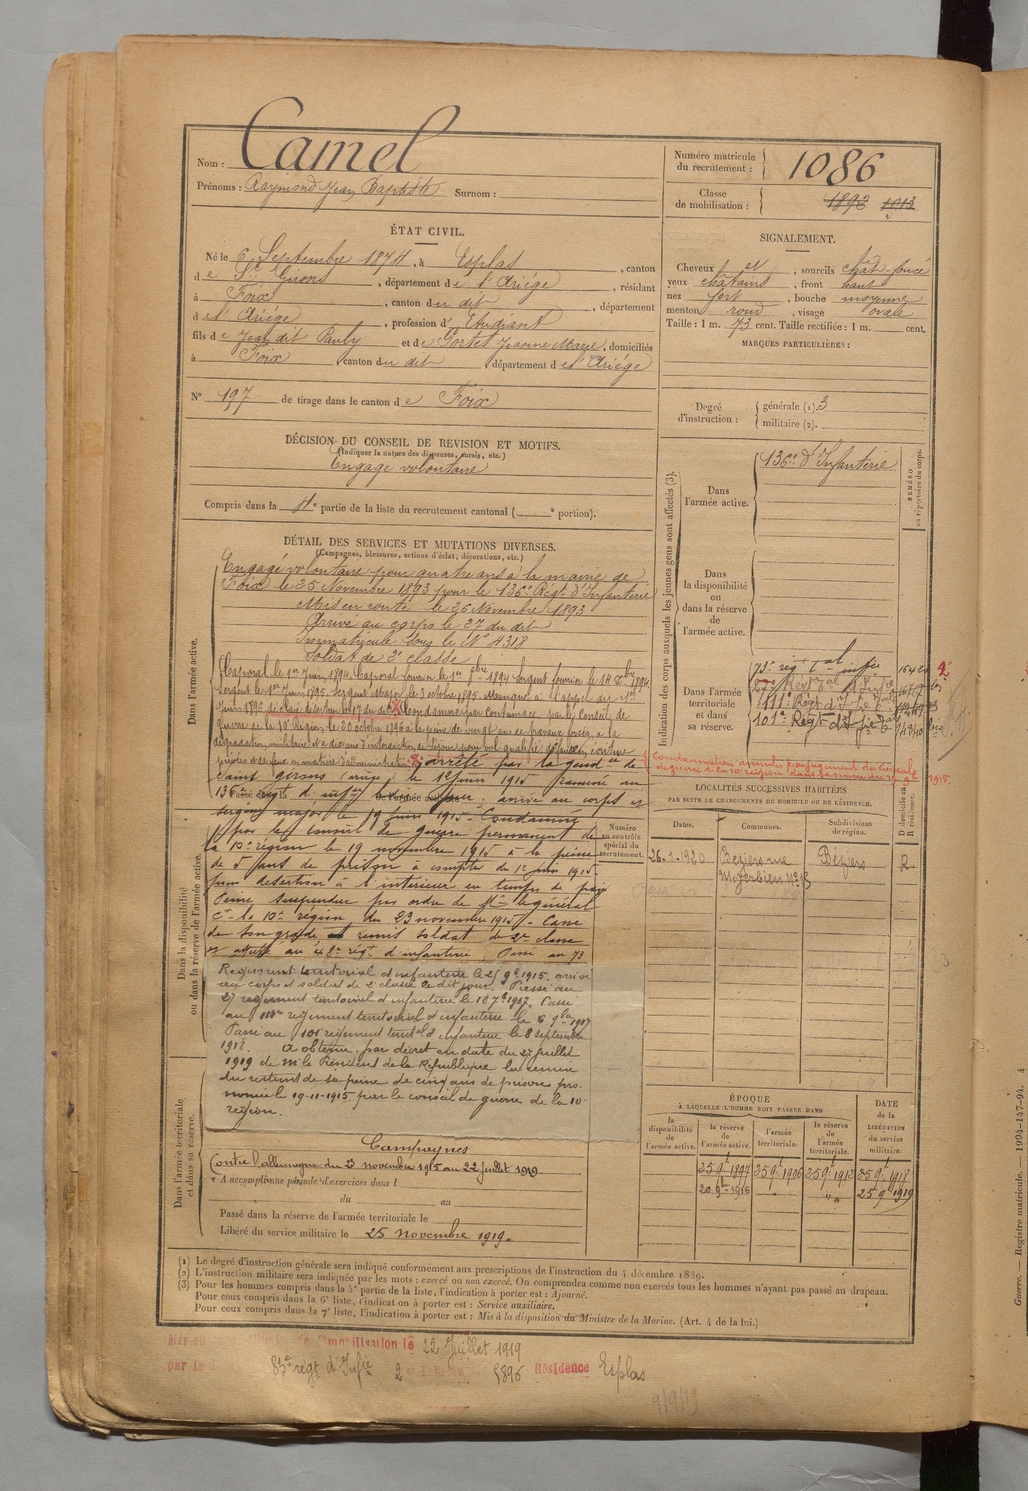 Nom : Camel
Prénoms : Raymond Jean Baptiste Surnom :
Numéro matricule du recrutement : 1086
Classe de mobilisation : 1892 1913
ÉTAT CIVIL.
Né le 6 Septembre 1874, à Esplas, canton
de St Girons, département de l'Ariège, résidant
à Foix, canton du dit, département
de l'Ariège, profession d'Etudiant
fils de Jean dit Pauly et de Portet Jeanne Marie, domiciliés
à Foix canton du dit département de l'Ariège
N° 197 de tirage dans le canton de Foix
SIGNALEMENT.
Cheveux et, sourcils chât-foncé
yeux châtains, front haut
nez fort, bouche moyenne
menton rond, visage ovale
Taille : 1 m. 73 cent. Taille rectifiée : 1 m. cent.
MARQUES PARTICULIÈRES :
Degré d'instruction : générale (1). 3
militaire (2).
DÉCISION DU CONSEIL DE REVISION ET MOTIFS.
(Indiquer la nature des dispenses, sursis, etc.)
Engagé volontaire
Compris dans la 4e partie de la liste du recrutement cantonal ( e portion).
DÉTAIL DES SERVICES ET MUTATIONS DIVERSES.
(Campagnes, blessures, actions d'éclat, décorations, etc.)
Dans l'armée active.
Engagé volontaire pour quatre ans à la mairie de
Foix le 25 Novembre 1893 pour le 136e Régt d'Infanterie
Mis en route le 26 Novembre 1893
Arrivé au corps le 27 du dit
Immatriculé sous le N° 4318
Soldat de 2e classe
Caporal le 1er Juin 1894. Caporal fourrier le 1er 1894 Sergent fourrier le 14 1894
Sergent le 1er Juin 1895. Sergent Major le 3 octobre 1895. Manque à l'appel du
Juin 1896 déclaré déserteur le 17 du dit Condamné par Contumace, par le Conseil de
guerre de la 10e Région, le 20 octobre 1896 à la peine de vingt ans de travaux forcés, à la
dégradation militaire et à dix ans d'interdiction de séjour pour vol qualifié
arrêté par la gendie de
Saint Girons (ariège) le 1er juin 1915
136e régt d'infie arrivé au corps et
sergent major le 19 juin 1915. Condamné
par le Conseil de guerre permanent de
la 10e région le 19 novembre 1915 à la peine
de 5 ans de prison à compter du 1er juin 1915
pour désertion à l'intérieur en temps de paix
Peine suspendue par ordre de Mr le général
Ct la 10e région du 23 novembre 1915 - Cassé
de son grade et remis soldat de 2e classe
et affecté au 48e régt d'infanterie. Passé au 73
Dans la disponibilité ou dans la réserve de l'armée active.
Régiment territorial d'infanterie le 25 9bre 1915. arrivé
au corps et soldat de 2e classe le dit jour. Passé au
27 régiment territorial d'infanterie le 18 7bre 1917. Passé
au 111e régiment territorial d'infanterie le 6 9bre 1917
Passé au 101e régiment territ d'infanterie le 8 septembre
1918. A obtenu par décret en date du 27 juillet
1919 de Mr le Président de la République la remise
du restant de sa peine de cinq ans de prison pro-
noncée le 19-11-1915 par le conseil de guerre de la 10e
région.
Dans l'armée territoriale et dans sa réserve.
Campagnes
Contre l'allemagne du 3 novembre 1915 au 22 juillet 1919
A accompli une période d'exercices dans l
du au
Passé dans la réserve de l'armée territoriale le
Libéré du service militaire le 25 novembre 1919.
Indication des corps auxquels les jeunes gens sont affectés (3).
Dans l'armée active. 136e d'Infanterie
NUMÉRO au répertoire du corps.
Dans la disponibilité ou dans la réserve de l'armée active.
Dans l'armée territoriale et dans sa réserve.
73e régt Tal infie
111e Régt d'Infie Tal
101e Régt d'Infie Tal
Condamnation annulée par jugement du Conseil
de guerre de la 10e région dans sa séance du 1915.
LOCALITÉS SUCCESSIVES HABITÉES
PAR SUITE DE CHANGEMENTS DE DOMICILE OU DE RÉSIDENCE.
Numéro au contrôle spécial du recrutement.
Dates. Communes. Subdivisions de région. D domicile ou R résidence.
26.1.1920 Béziers rue Béziers R
ÉPOQUE
À LAQUELLE L'HOMME DOIT PASSER DANS
DATE de la LIBÉRATION du service militaire.
la disponibilité de l'armée active. la réserve de l'armée active. l'armée territoriale. la réserve de l'armée territoriale.
25 9bre 1897 25 9bre 1906 25 9bre 1912 25 9bre 1918
20 9bre 1916 " " 25 9bre 1919
(1) Le degré d'instruction générale sera indiqué conformément aux prescriptions de l'instruction du 4 décembre 1889.
(2) L'instruction militaire sera indiquée par les mots : exercé ou non exercé. On comprendra comme non exercés tous les hommes n'ayant pas passé au drapeau.
(3) Pour les hommes compris dans la 5e partie de la liste, l'indication à porter est : Ajourné.
Pour ceux compris dans la 6e liste, l'indication à porter est : Service auxiliaire.
Pour ceux compris dans la 7e liste, l'indication à porter est : Mis à la disposition du Ministre de la Marine. (Art. 4 de la loi.)
démobilisation le 22 Juillet 1919
par le 83e régt d'Infie 2 5895 Résidence Esplas
9/9/19
Guerre. — Registre matricule. — 1994-147-94. 4